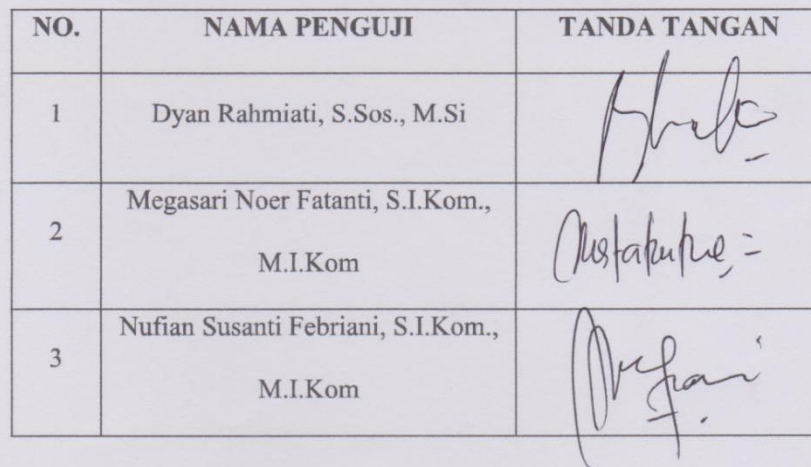 NO. NAMA PENGUJI TANDA TANGAN
1 Dyan Rahmiati, S.Sos., M.Si
Megasari Noer Fatanti, S.I.Kom.,
2
M.I.Kom
Nufian Susanti Febriani, S.I.Kom.,
3
M.I.Kom